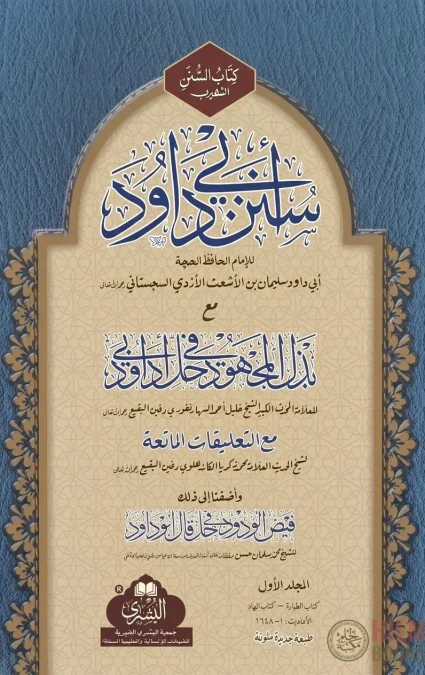 كِتَابُ السُّنَنِ
الشهير ب
سُنَنُ أَبِي دَاوُدَ
للإمام الحافظ الحجة
أبي داود سليمان بن الأشعث الأزدي السجستاني رحمه الله تعالى
مع
بذل المجهود في حل أبي داود
للعلامة المحدث الكبير الشيخ خليل أحمد السهارنفوري دفين البقيع رحمه الله تعالى
مع التعليقات الماتعة
لشيخ الحديث العلامة محمد زكريا الكاندهلوي دفين البقيع رحمه الله تعالى
وأضفنا إلى ذلك
فيض الودود في حل قال أبو داود
للشيخ محمد سلمان حسن
المجلد الأول
كتاب الطهارة – كتاب الصلاة
الأحاديث: ١-١٦٤٨
طبعة جديدة ملونة
البشرى
®
جمعية البشرى الخيرية
للخدمات الإنسانية والتعليمية المسجلة